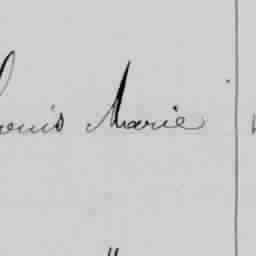 Louis Marie
"